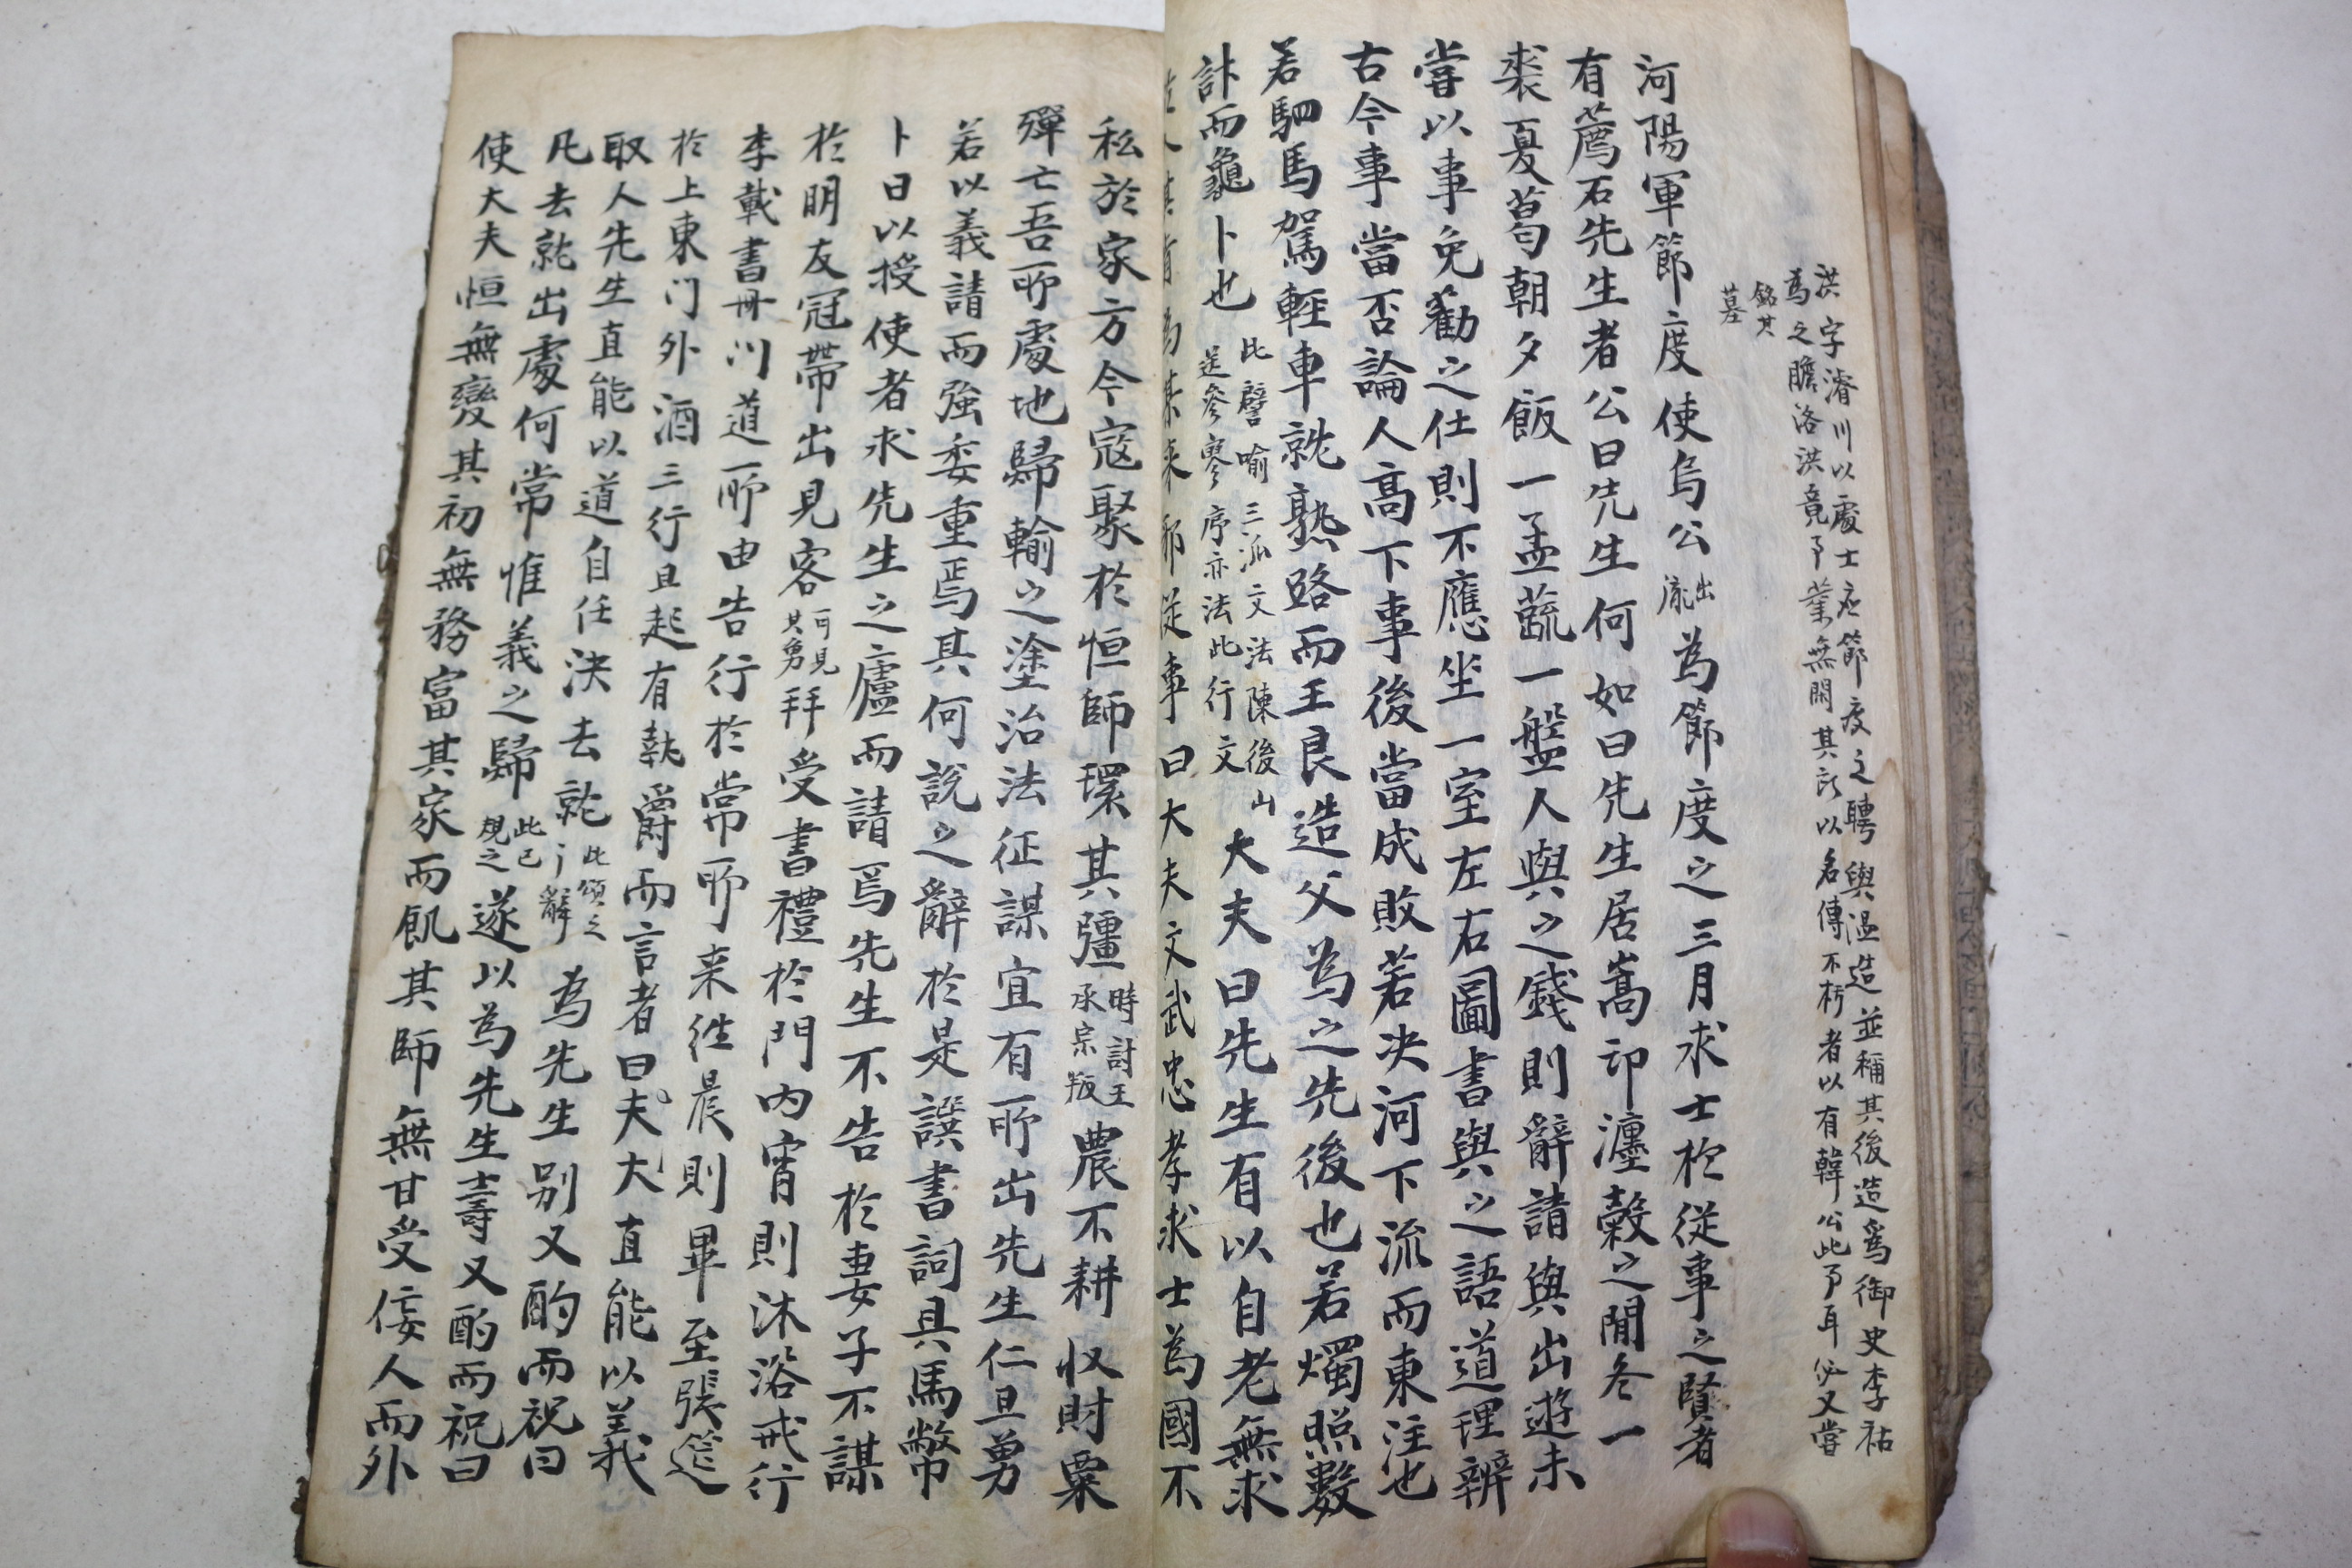 洪字濬川以處士應節度之聘與溫造並稱其後造爲御史李祐
為之膽洛洪竟予業無聞其所以名傳不朽者以有韓公此予耳公又嘗
銘其
墓
河陽軍節度使烏公出為節度之三月求士於從事之賢者
有薦石先生者公曰先生何如曰先生居嵩卭瀍穀之間冬一
裘夏葛朝夕飯一盂蔬一盤人與之錢則辭請與出遊未
嘗以事免勸之仕則不應坐一室左右圖書與之語道理辨
古今事當否論人高下事後當成敗若決河下流而東注也
若駟馬駕輕車就熟路而王良造父為之先後也若燭照數
計而龜卜也
此譬喻三派文法陳後山
送參寥序亦法此行文
大夫曰先生有以自老無求
為某来邪從事曰大夫文武忠孝求士為國不
私於家方今寇聚於恒師環其疆
時討王
承宗叛
農不耕收財粟
殫亡吾所處地歸輸之塗治法征謀宜有所出先生仁且勇
若以義請而強委重焉其何說之辭於是譔書詞具馬幣
卜日以授使者求先生之廬而請焉先生不告於妻子不謀
於明友冠帶出見客
可見
其勇
拜受書禮於門內宵則沐浴戒行
李載書冊川道所由告行於常所来徃晨則畢至張筵
於上東门外酒三行且起有執爵而言者曰夫大直能以義
取人先生直能以道自任決去就
此頌之
辭
為先生別又酌而祝曰
凡去就出處何常惟義之歸
此已
規之
遂以為先生壽又酌而祝曰
使大夫恒無變其初無務富其家而飢其師無甘受佞人而外